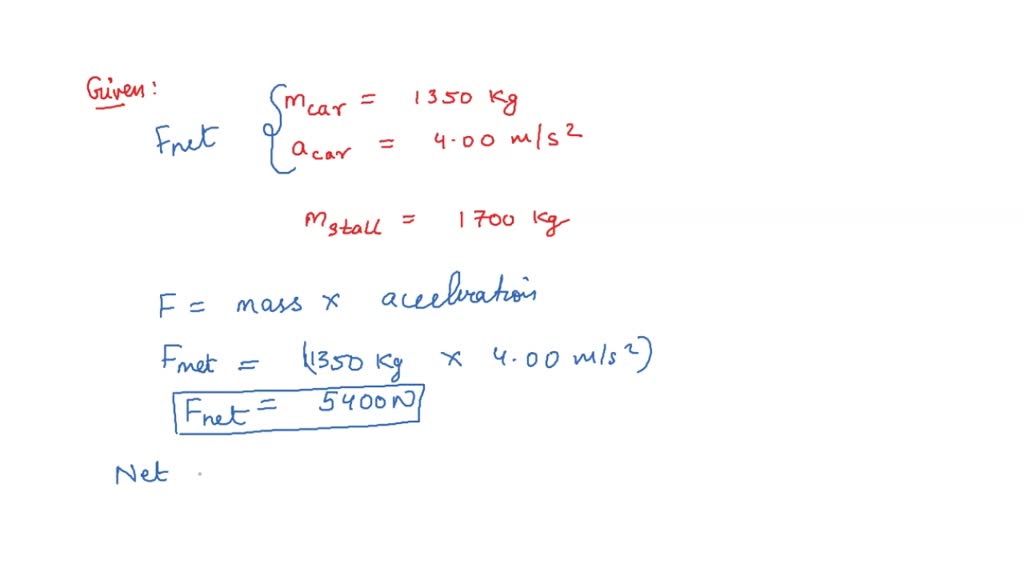 Given:
Fnet { mcar = 1350 kg
acar = 4.00 m/s²
mstall = 1700 kg
F = mass x aceeleration
Fnet = (1350 kg x 4.00 m/s²)
Fnet = 5400N
Net